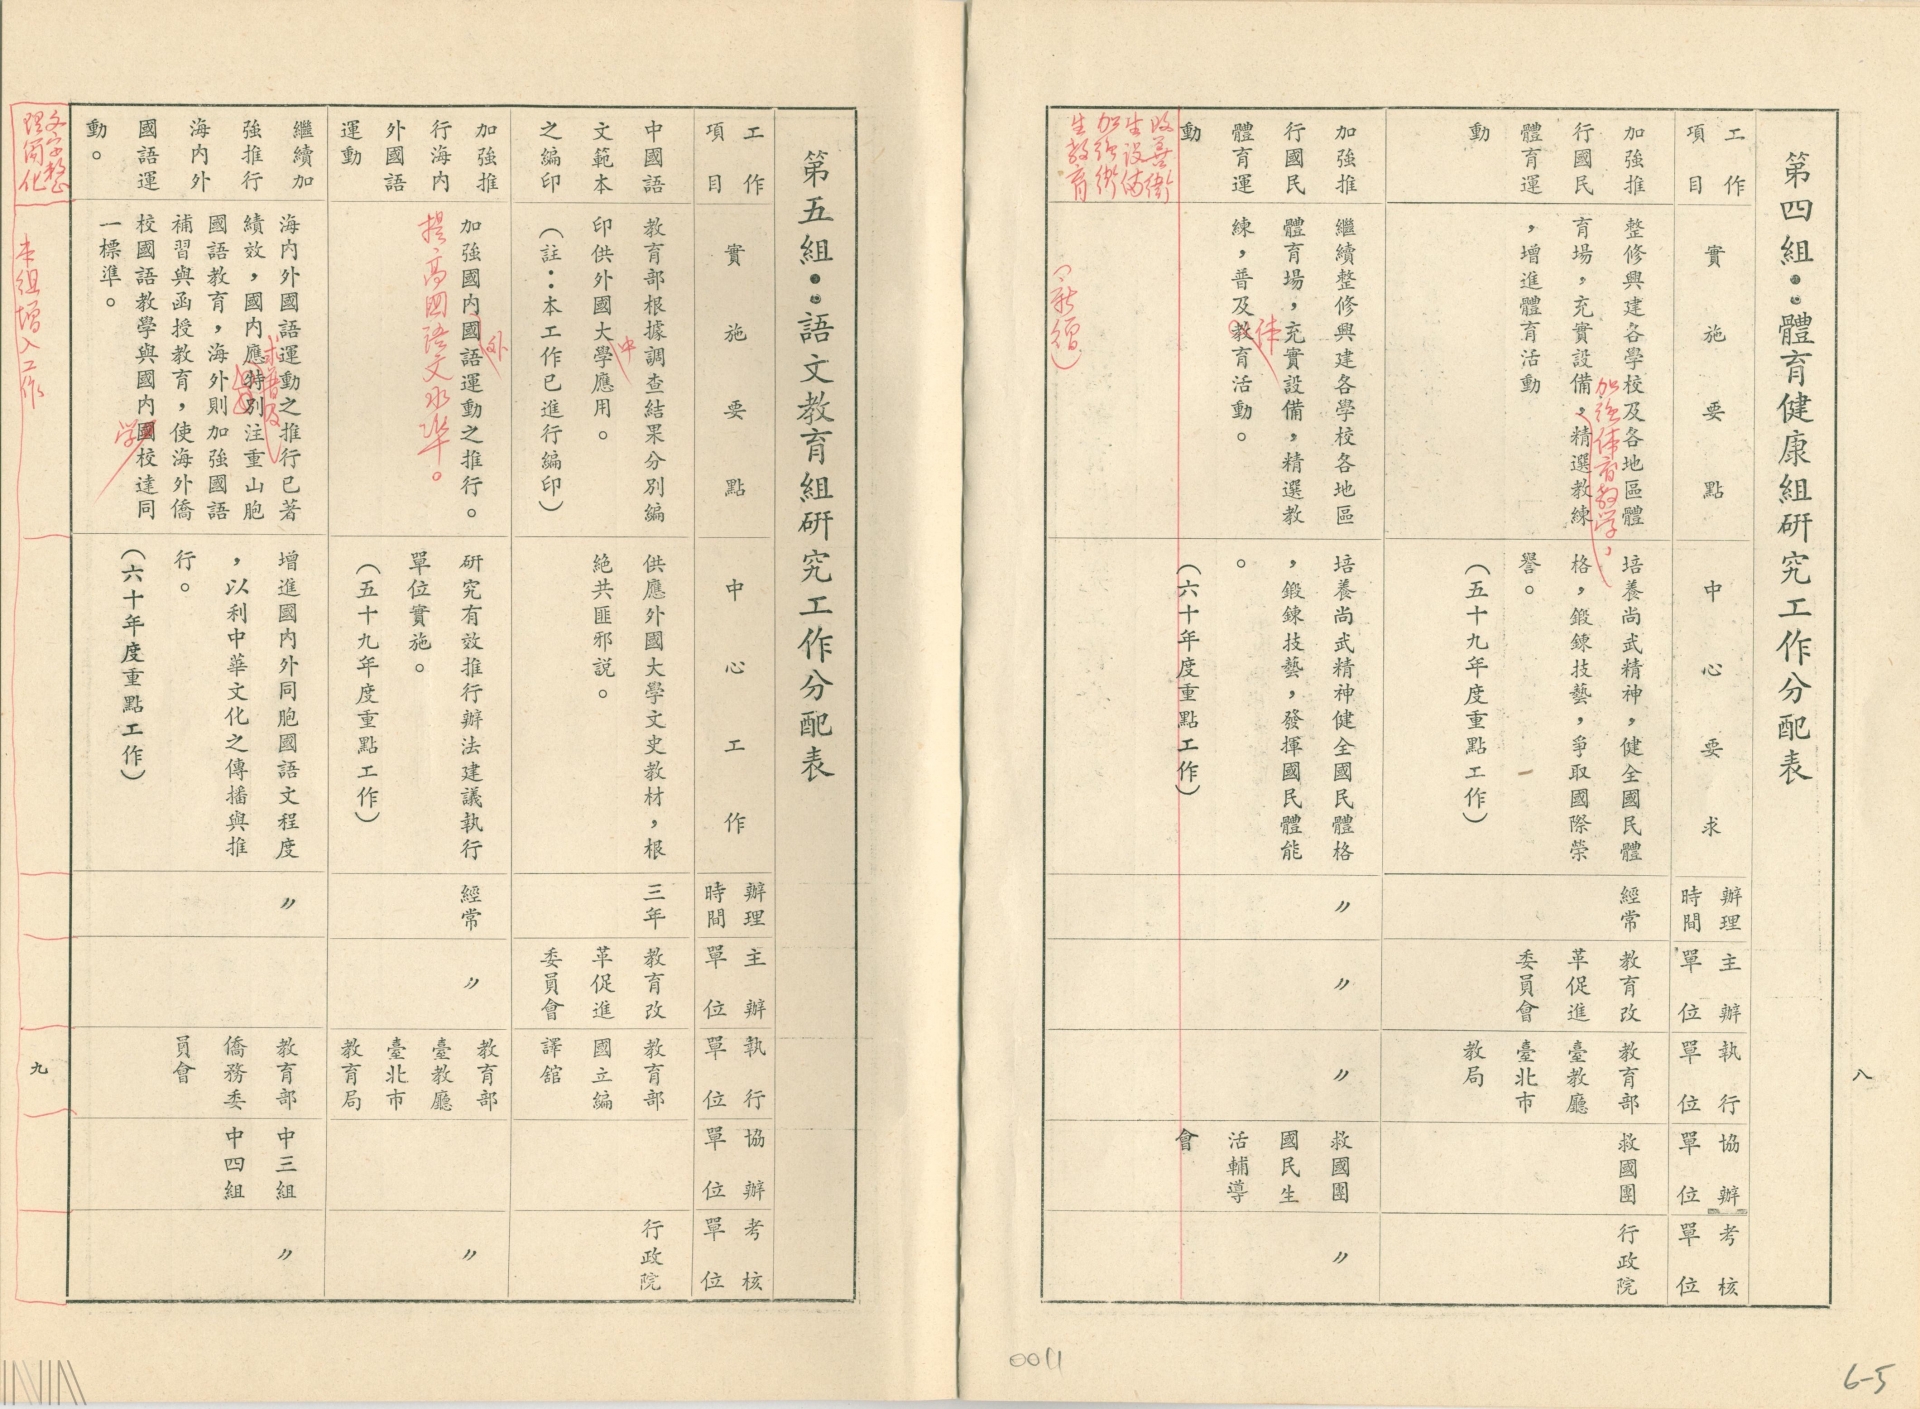 第四組：體育健康組研究工作分配表
工作項目
實施要點
中心要求
辦理時間
主辦單位
執行單位
協辦單位
考核單位
加強推
行國民
體育運
動
整修興建各學校及各地區體
育場，充實設備，精選教練
，增進體育活動
加強体育教学，
培養尚武精神，健全國民體
格，鍛鍊技藝，爭取國際榮
譽。
（五十九年度重點工作）
經常
教育改
革促進
委員會
教育部
臺教廳
臺北市
教局
救國團
行政院
加強推
行國民
體育運
動
繼續整修興建各學校各地區
體育場，充實設備，精選教
練，普及教育活動。
体
培養尚武精神健全國民體格
，鍛鍊技藝，發揮國民體能
。
（六十年度重點工作）
〃
〃
〃
救國團
國民生
活輔導
會
〃
改善衛
生設備
加強衛
生教育
（新增）
八
0011
6-5
第五組：語文教育組研究工作分配表
工作項目
實施要點
中心工作
辦理時間
主辦單位
執行單位
協辦單位
考核單位
中國語
文範本
之編印
教育部根據調查結果分別編
印供外國大學應用。
（註：本工作已進行編印）
中
供應外國大學文史教材，根
絕共匪邪說。
三年
教育改
革促進
委員會
教育部
國立編
譯舘
行政院
加強推
行海內
外國語
運動
加強國內國語運動之推行。
外
提高國語文水準。
研究有效推行辦法建議執行
單位實施。
（五十九年度重點工作）
經常
〃
教育部
臺教廳
臺北市
教育局
〃
繼續加
強推行
海內外
國語運
動。
海內外國語運動之推行已著
績效，國內應特別注重山胞
國語教育，海外則加強國語
補習與函授教育，使海外僑
校國語教學與國內國校達同
一標準。
求普及
学
增進國內外同胞國語文程度
，以利中華文化之傳播與推
行。
（六十年度重點工作）
〃
教育部
僑務委
員會
中三組
中四組
〃
文字整
理簡化
本組增入工作
九